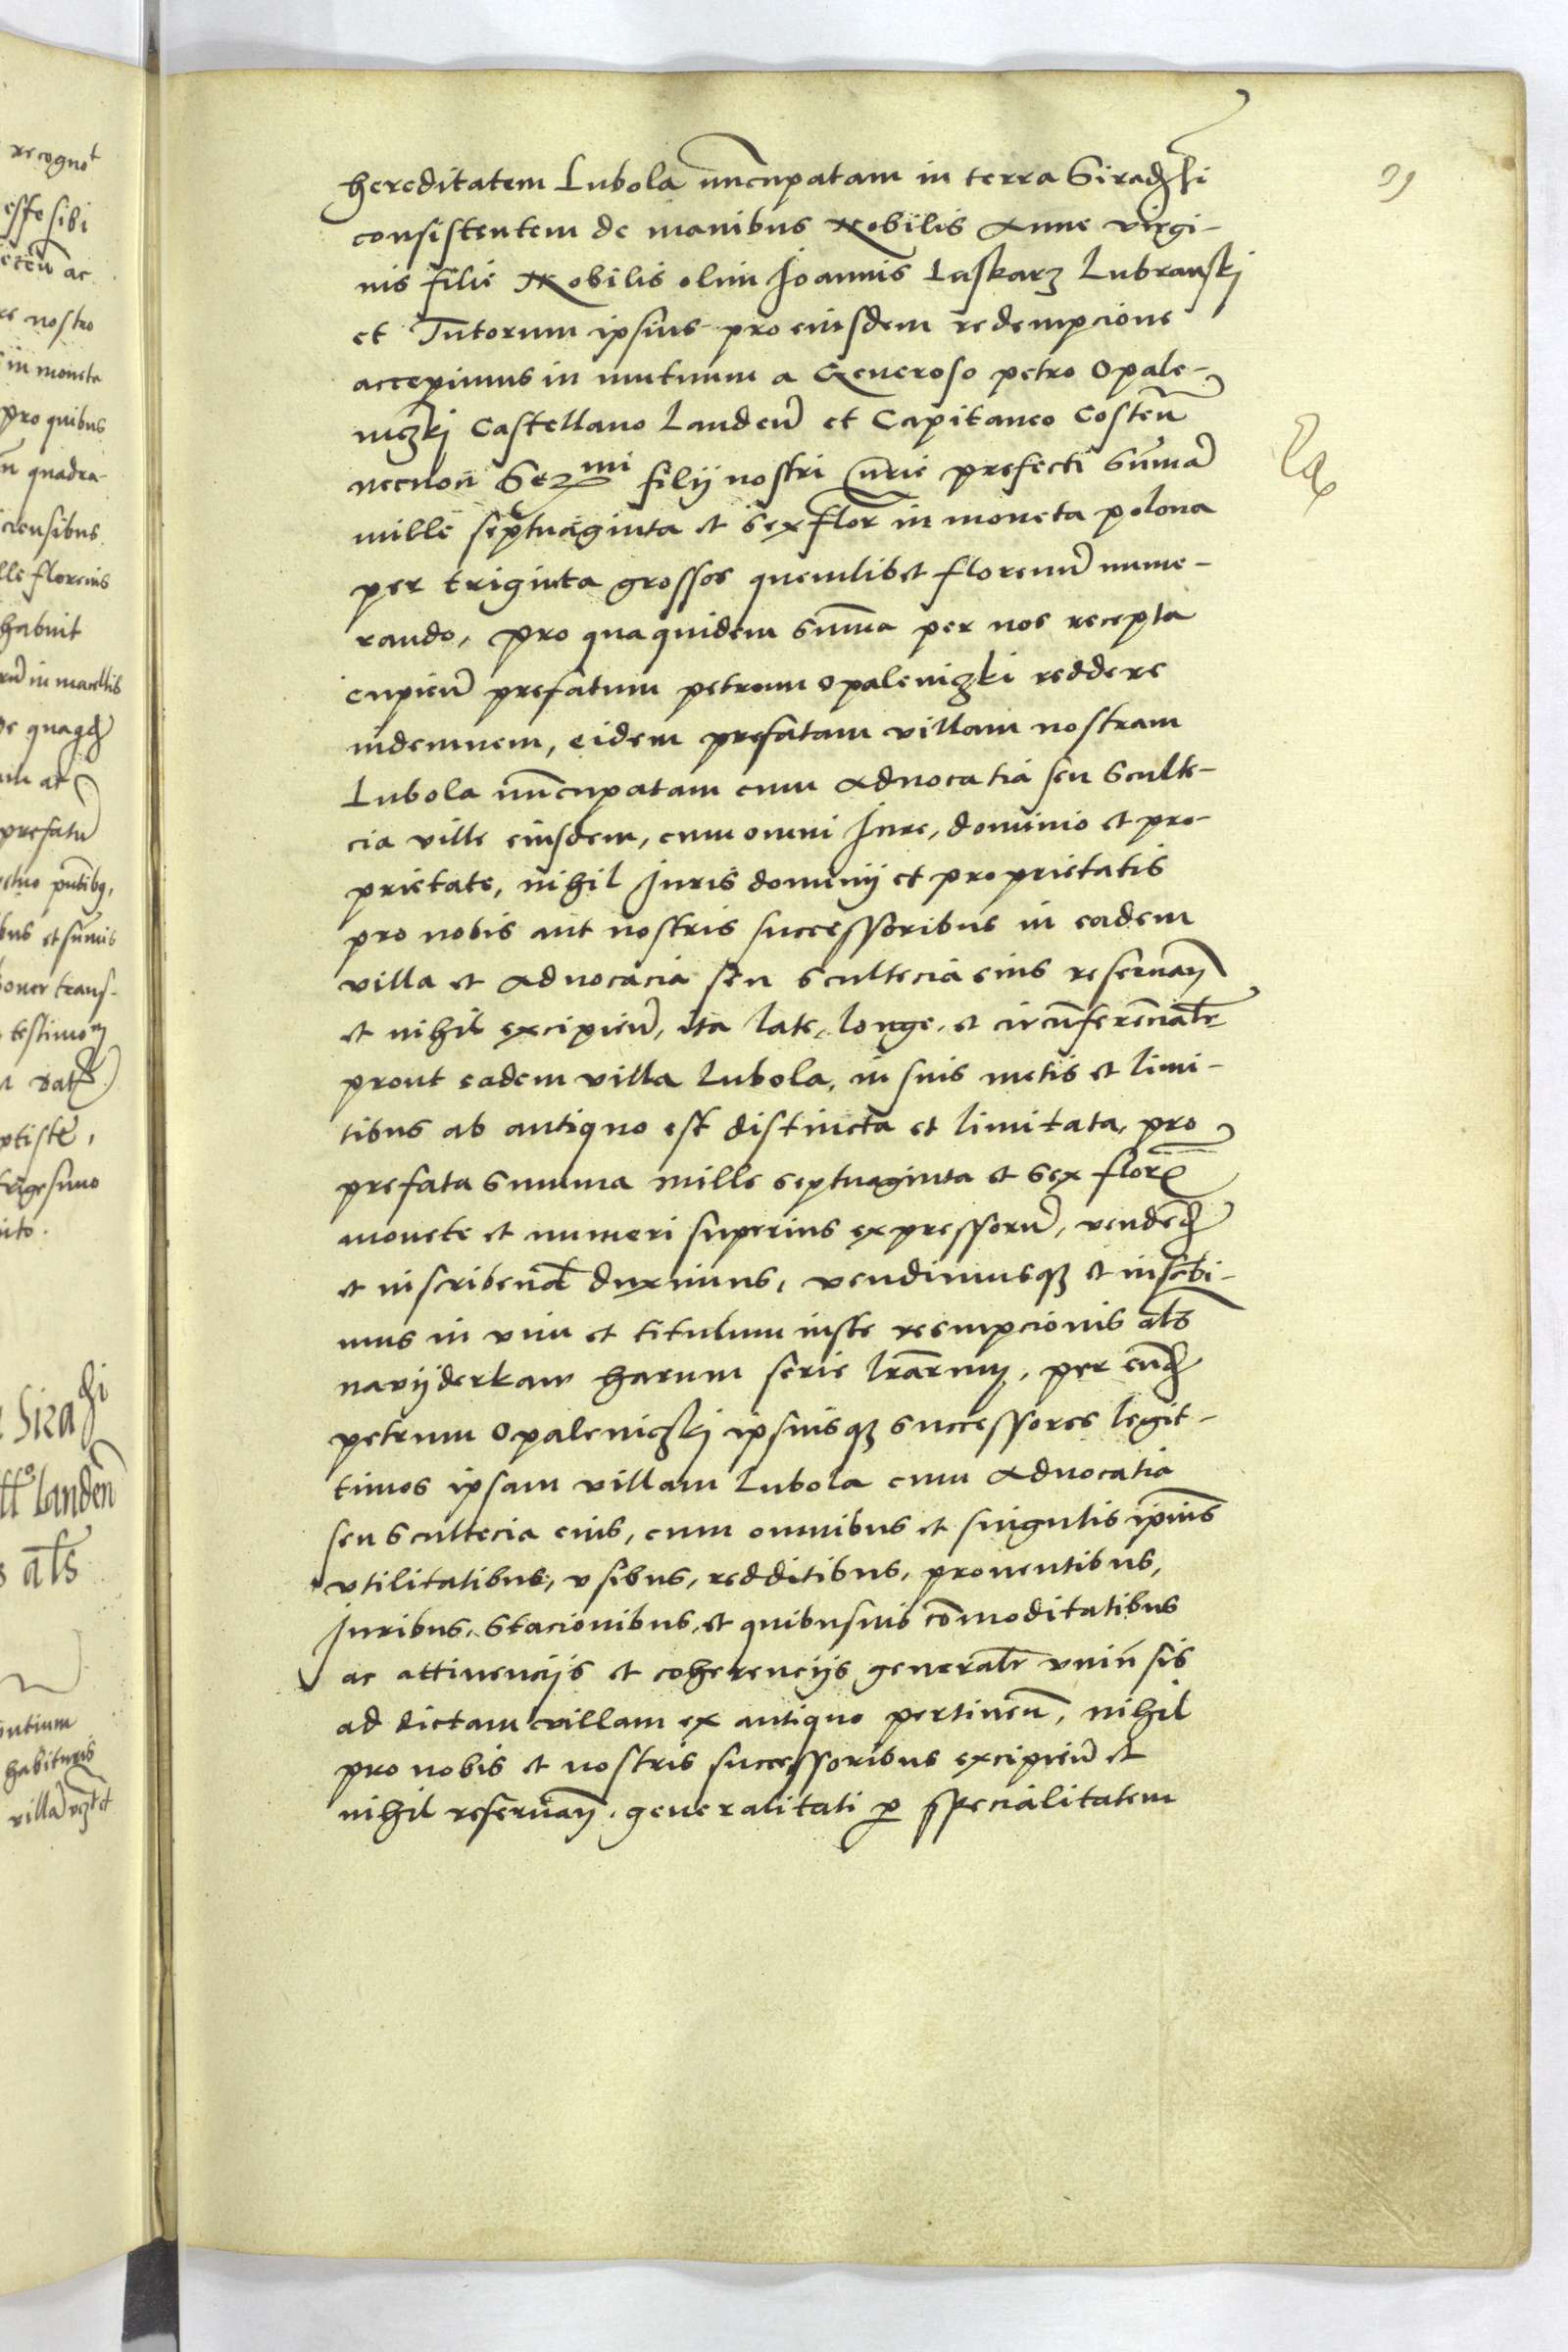 hereditatem Lubola nuncupatam in terra Siradzn̄
consistentem de manibus Nobilis Anne virgi-
nis filie Nobilis olim Joannis Laskarz Lubranskj
et Tutorum ipsius pro eiusdem redempcione
accepimus in mutuum a Generoso petro Opale-
niczkj Castellano Landen̄ et Capitaneo Costen̄
necnon Sermi filij nostri Curie prefecti sum̄ā
mille septuaginta et sex flor in moneta polona
per triginta grossos quemlibet florenū nume-
rando, pro qua quidem sum̄a per nos recepta
cupien̄ prefatum petrum Opaleniczki reddere
indemnem, eidem prefatam villam nostram
Lubola nūncupatam cum Aduocatia seu Sculte-
cia ville eiusdem, cum omni Jure, dominio et pro-
prietate, nihil Juris dominij et proprietatis
pro nobis aut nostris successoribus in eadem
villa et Aduocacia seu scultecia eius reseruan̄
et nihil excipien̄, ita late, longe, et circūnferēncialr
prout eadem villa Lubola, in suis metis et limi-
tibus ab antiquo est distincta et limitata, pro
prefata summa mille septuaginta et sex flor̄
monete et numeri superius expressorū, vendend̄
et inscribend̄ duximus, vendimusqȝ et inscbi-
mus in vim et titulum iuste reempcionis al̄s
navijderkaw harum serie lr̄arum, per eund̄
petrum Opaleniczkj ipsiusqȝ successores legit-
timos ipsam villam Lubola cum Aduocatia
seu scultecia eius, cum omnibus et singulis ip̄ius
vtilitatibus, vsibus, redditibus, prouentibus,
Juribus, Stacionibus, et quibusuis cōmoditatibus
ac attinencijs et coherencijs generalr vniūsis
ad dictam villam ex antiquo pertinen̄, nihil
pro nobis et nostris successoribus excipien̄ et
nihil reseruan̄, generalitati p̱ specialitatem